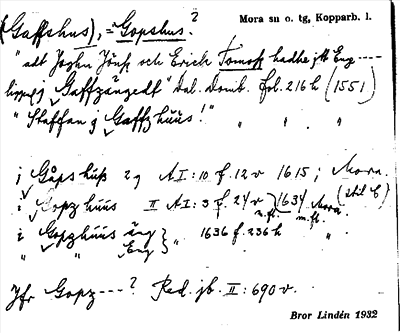 (Gaffshus), = Gopshus. ?
Mora sn o. tg, Kopparb. l.
"adt Joghn Jönß och Erick Tomoß hadhe jtt Eng ----
liggs j Gaffzängedt" Dal. Domb. fol. 216 h (1551)
"Staffan j Gaffzhúús!" " " "
j Gåpshuß 2 g AI:10 f. 12 v 1615; Mora.
i Gopzhúús II AI:3 f. 24 v 1634 Mora. (itil C)
m.fl. m.fl.
i Gopzhúús äng } " 1636 f. 236 h "
" " Eng
Jfr Gopz---? Red. jb. II: 690 v.
Bror Lindén 1932